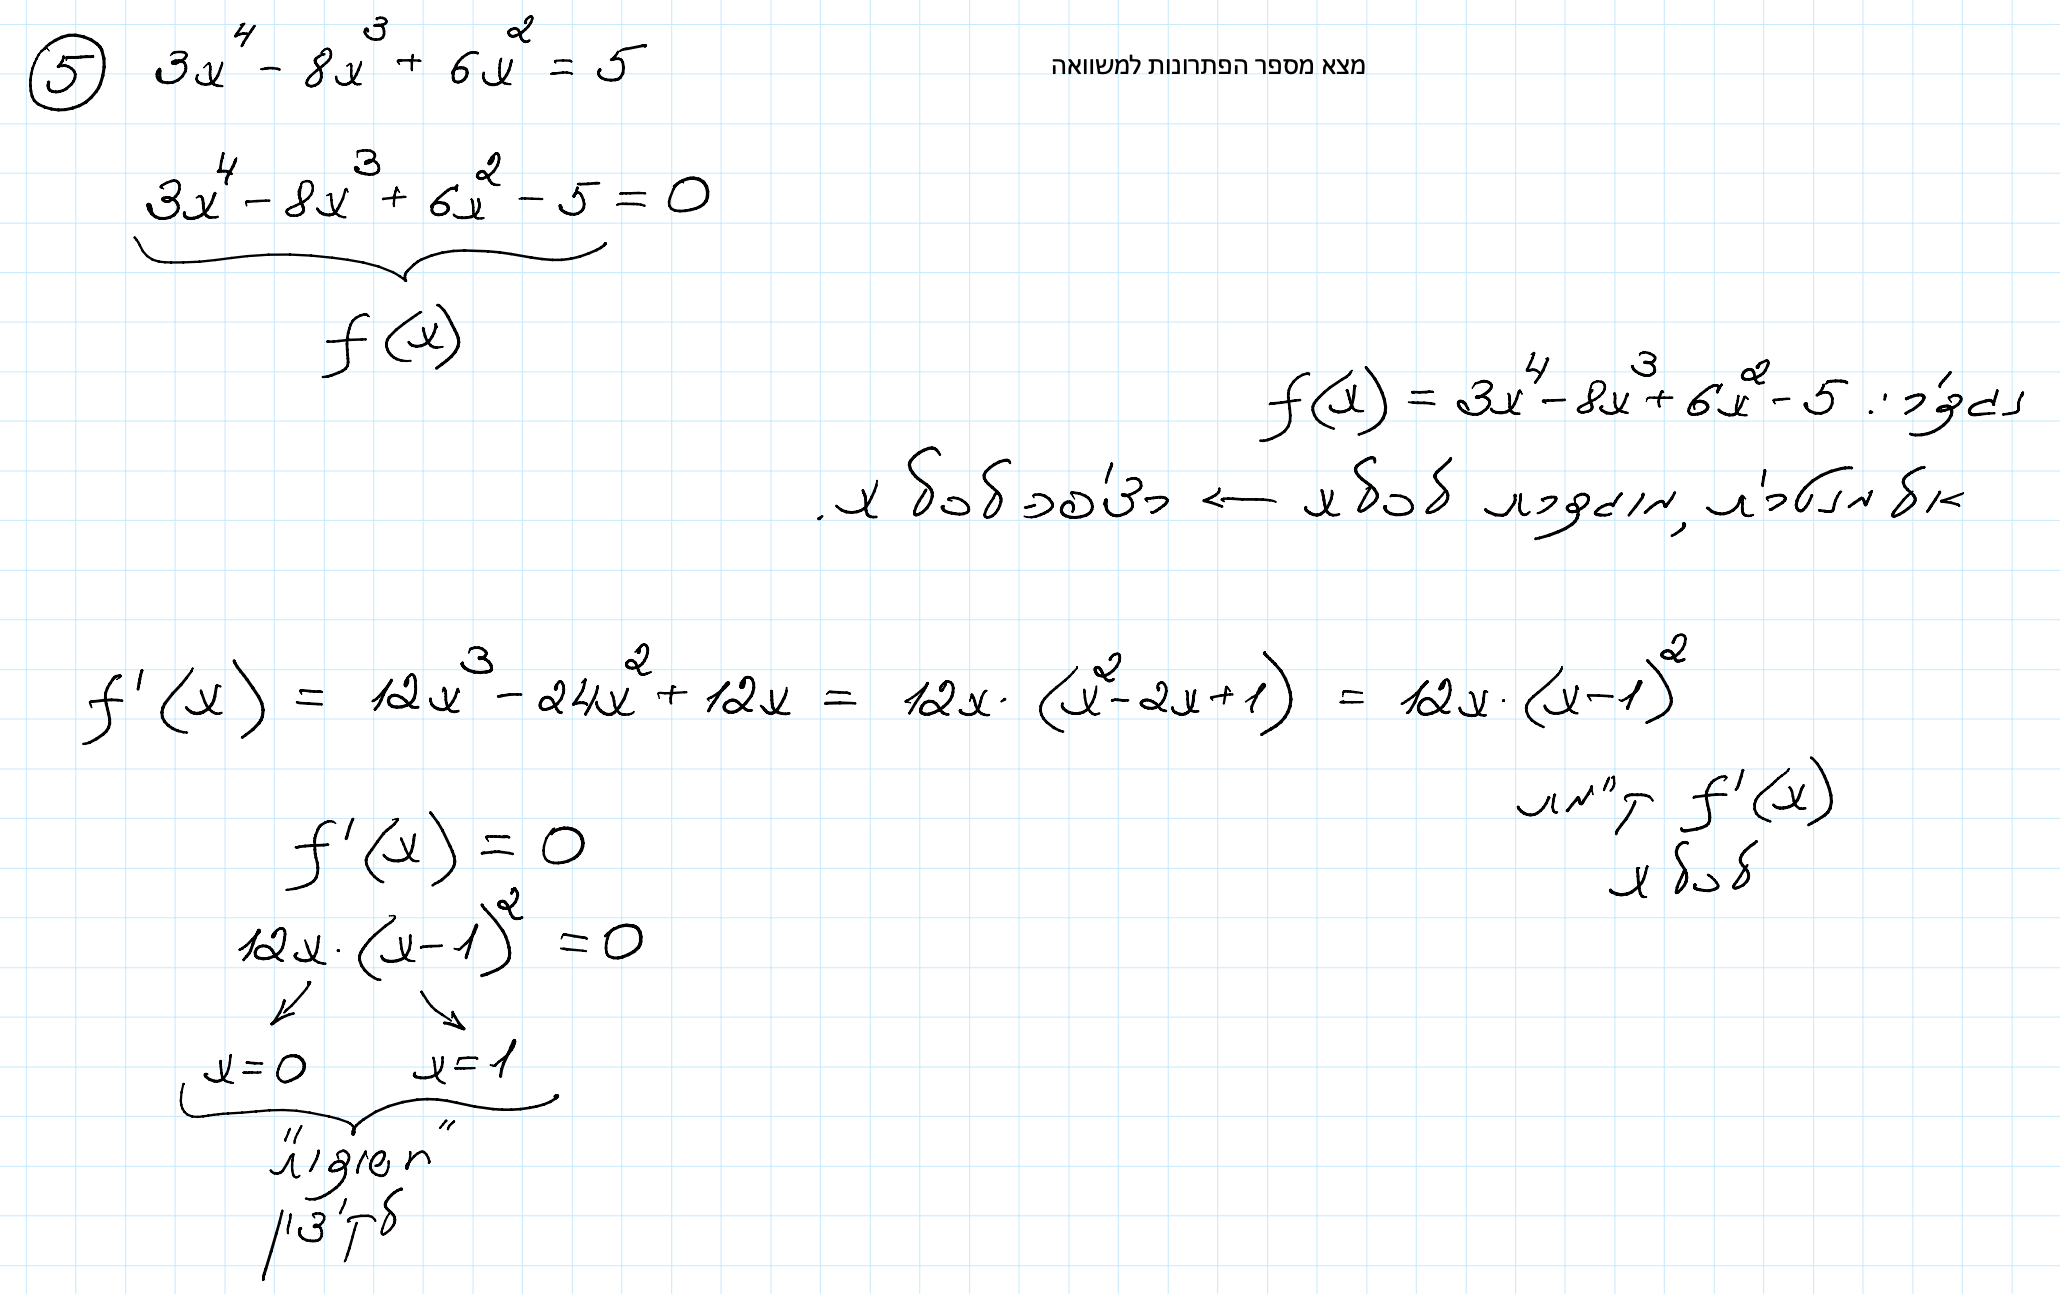 ⑤ 3x⁴ - 8x³ + 6x² = 5
מצא מספר הפתרונות למשוואה
3x⁴ - 8x³ + 6x² - 5 = 0
f(x)
נגדיר: f(x) = 3x⁴ - 8x³ + 6x² - 5
אלמנטרית, מוגדרת לכל x ← רציפה לכל x.
f'(x) = 12x³ - 24x² + 12x = 12x·(x² - 2x + 1) = 12x·(x-1)²
f'(x) קיימת
לכל x
f'(x) = 0
12x·(x-1)² = 0
x=0 x=1
"חשודות"
לקיצון